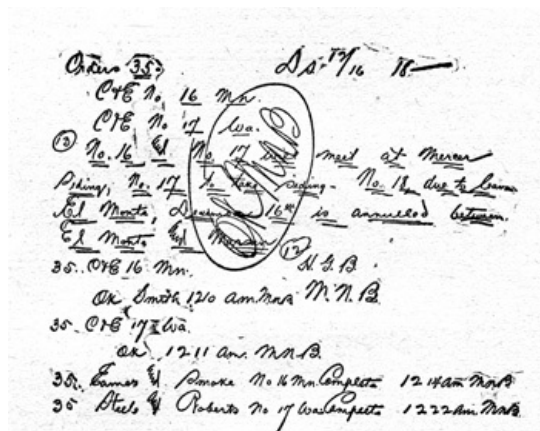 Orders 35 Ds. 12/16 18—
C&E No. 16 Mn.
C&E No 17 Wa.
(12) No. 16 El No. 17 will meet at Mercer
Siding, No. 17 to take siding. No. 18, due to leave
El Monte, December 16th is annulled between
El Monte and
(12) H.G.B.
35. C&E 16 Mn.
OK Smith 1210 am MNB M.N.B.
35. C&E 17 Wa.
OK 1211 am. MNB.
35. Eames El Smoke No 16 Mn Complete 1214am MNB
35 Steele El Roberts No 17 Wa Complete 1222am MNB.